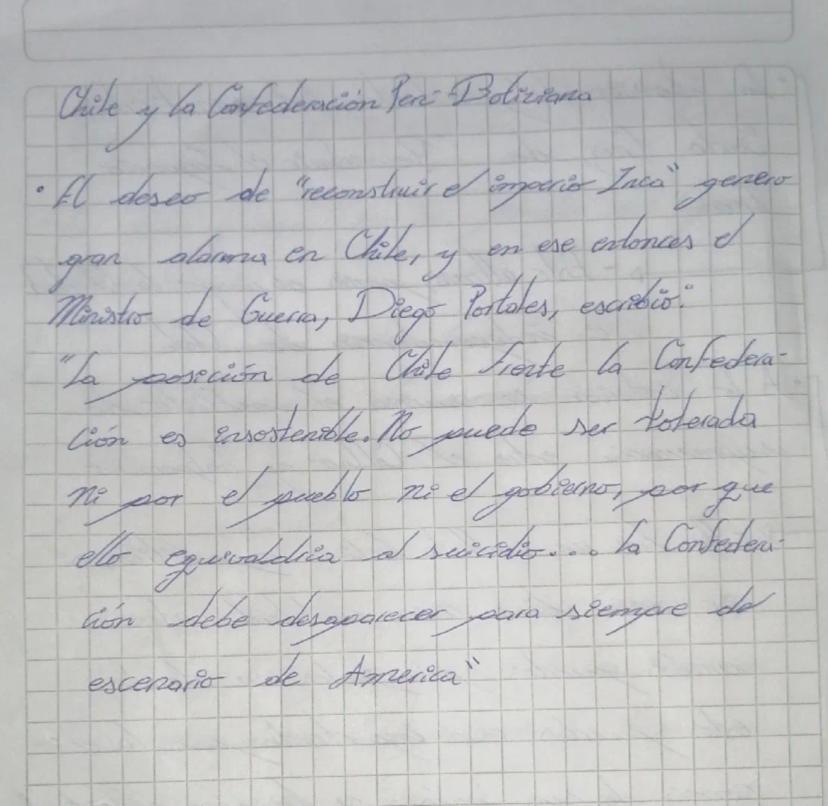 Chile y la Confederación Perú-Boliviana
• El deseo de "reconstruir el imperio Inca" genero
gran alarma en Chile, y en ese entonces el
Ministro de Guerra, Diego Portales, escribió:
"La posición de Chile frente la Confedera-
ción es insostenible. No puede ser tolerada
ni por el pueblo ni el gobierno, por que
ello equivaldria al suicidio... la Confedera-
ción debe desaparecer para siempre del
escenario de America"